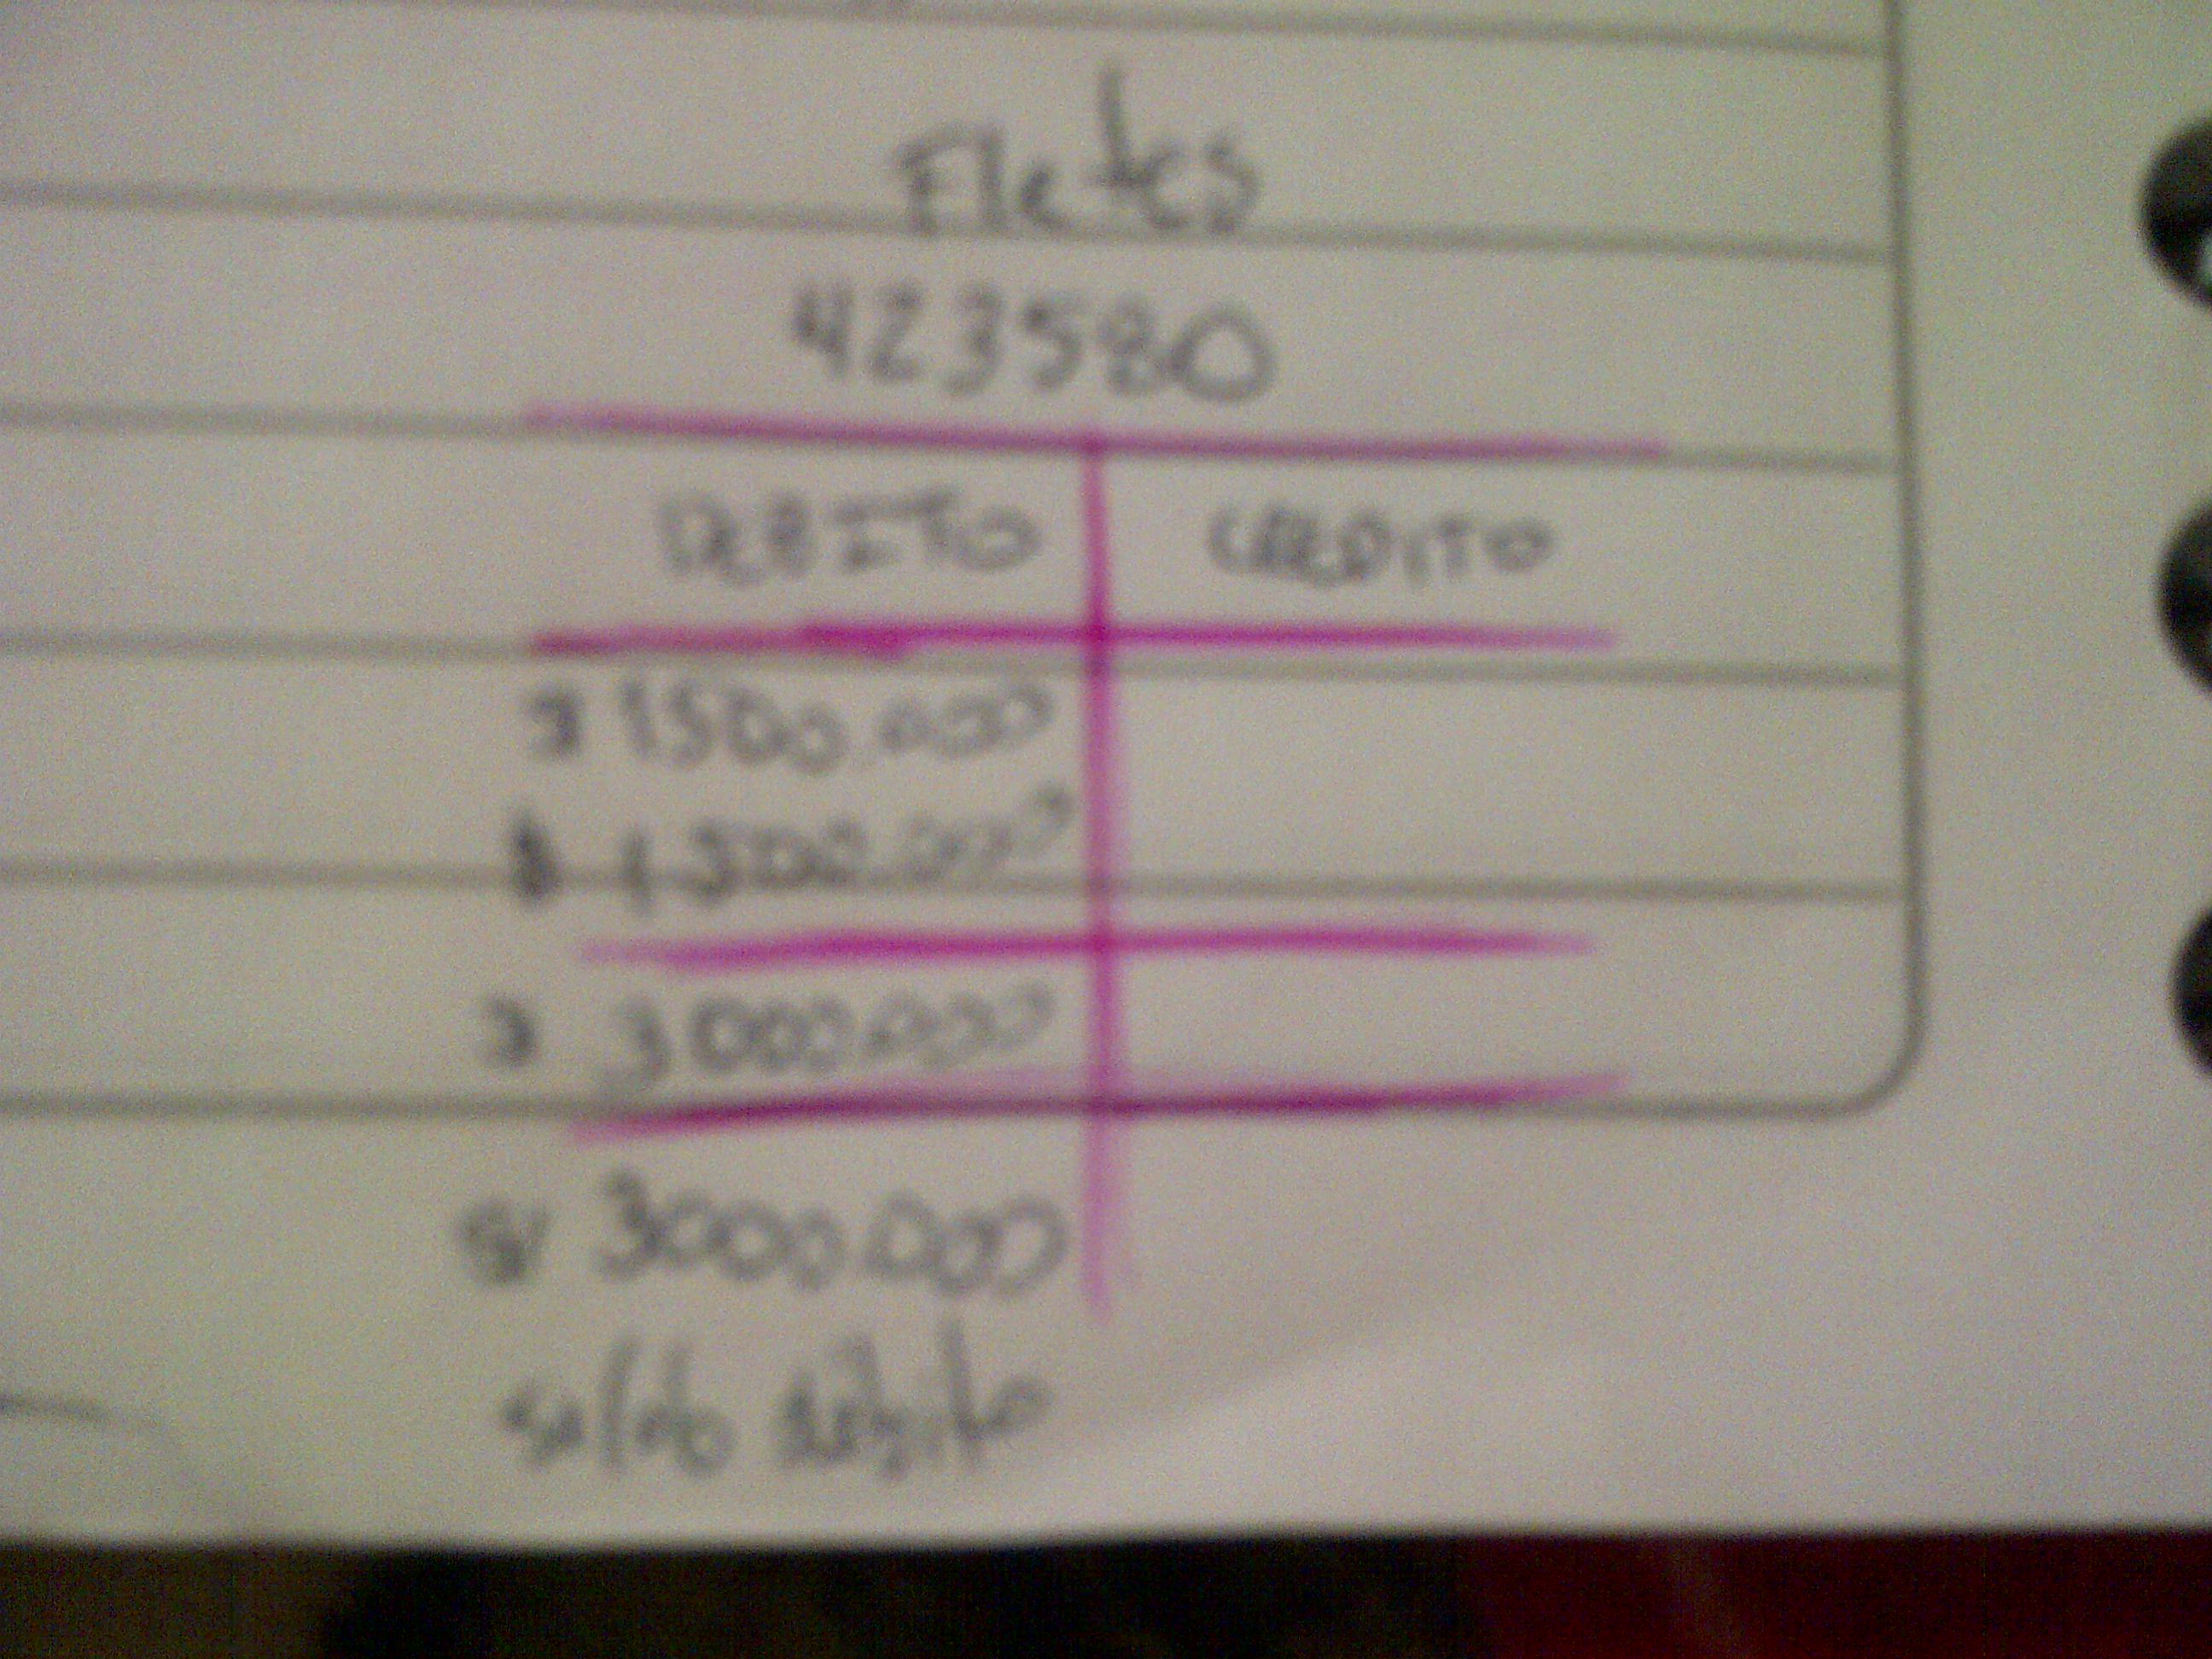 Fletes
423580
DEBITO CREDITO
$ 1500.000
$ 1500.000
$ 3000.000
$ 3000.000
saldo débito